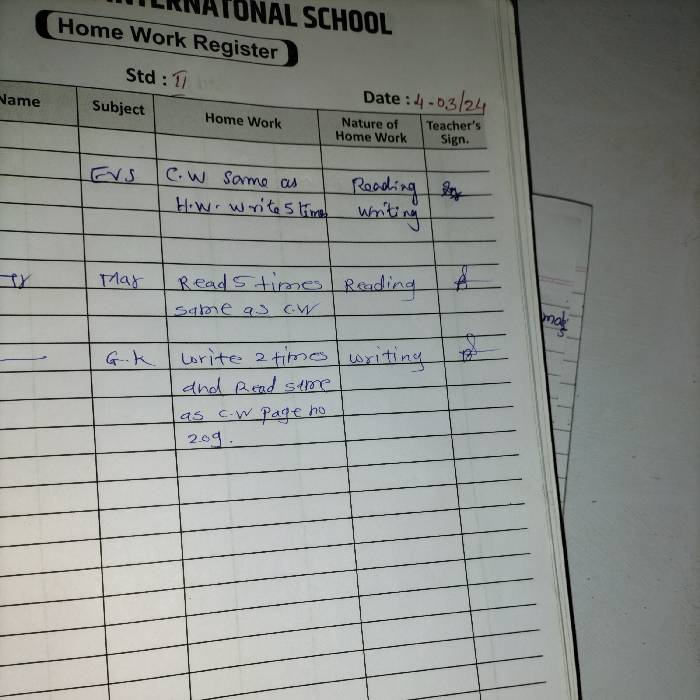 INTERNATONAL SCHOOL
Home Work Register
Std : II
Date : 4-03/24
Name Subject Home Work Nature of Home Work Teacher's Sign.
EVS C.W same as Reading
H.W. write 5 times writing
Mar Read 5 times Reading
same as C.W
G.K write 2 times writing
and Read same
as C.W page no
209.